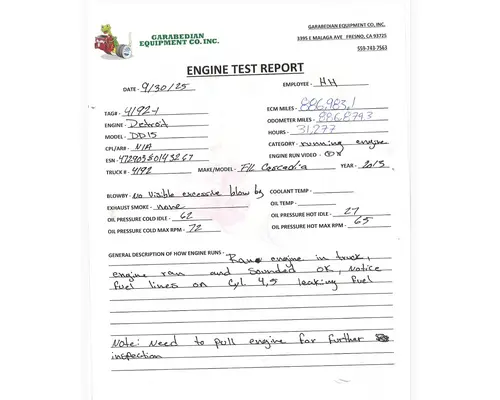 GARABEDIAN
EQUIPMENT CO. INC.
GARABEDIAN EQUIPMENT CO, INC.
3395 E MALAGA AVE FRESNO, CA 93725
559-743-7563
ENGINE TEST REPORT
DATE - 9/30/25 EMPLOYEE - HH
TAG# - 4192-1 ECM MILES - 886,983.1
ENGINE - Detroit ODOMETER MILES - 886,879.3
MODEL - DD15 HOURS - 31,277
CPL/ARB - N/A CATEGORY - running engine
ESN - 472903S0143267 ENGINE RUN VIDEO - Y N
TRUCK # - 4192 MAKE/MODEL - F/L Cascadia YEAR - 2013
BLOWBY - No visible excessive blow by COOLANT TEMP -
EXHAUST SMOKE - none OIL TEMP -
OIL PRESSURE COLD IDLE - 62 OIL PRESSURE HOT IDLE - 27
OIL PRESSURE COLD MAX RPM - 72 OIL PRESSURE HOT MAX RPM - 65
GENERAL DESCRIPTION OF HOW ENGINE RUNS - Ran engine in truck,
engine ran and sounded OK, Notice
fuel lines on Cyl 4,5 leaking fuel
Note: Need to pull engine for further
inspection